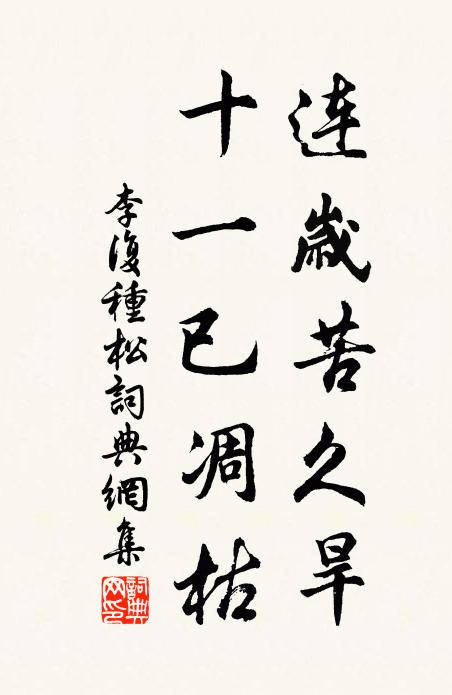 连歲苦久旱
十一已凋枯
李復種松詞典網集
詞典網印